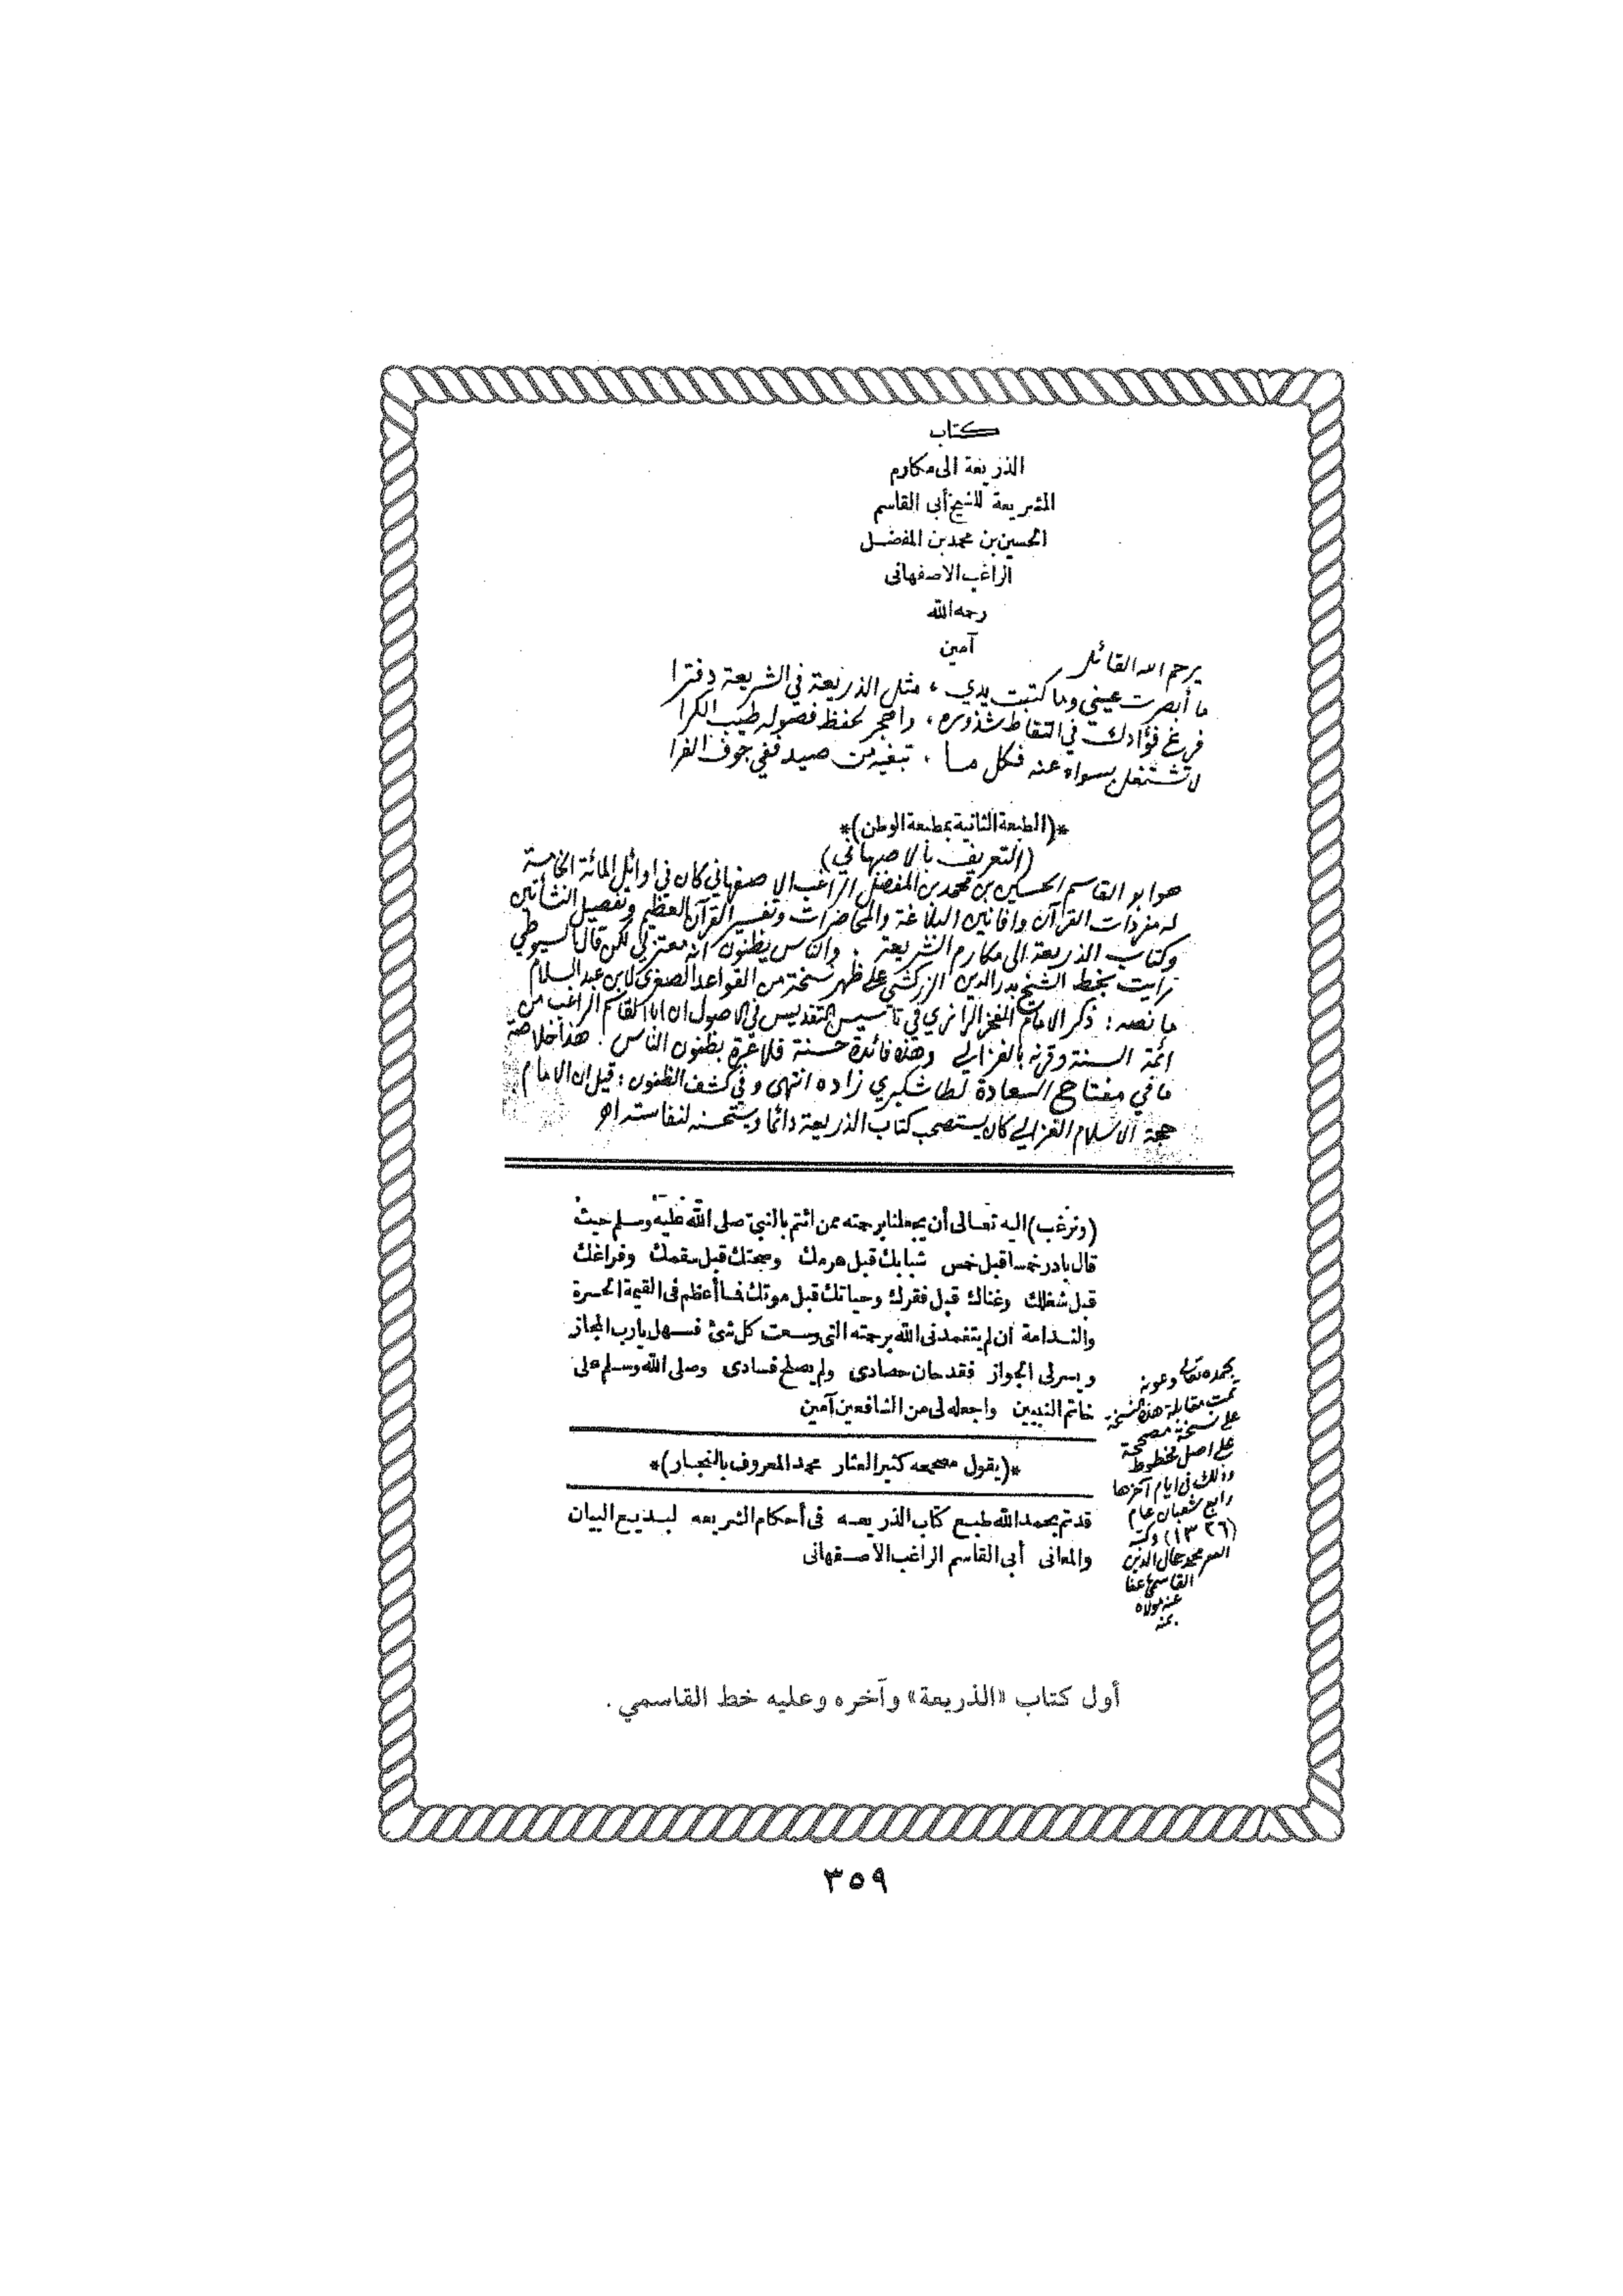 كتاب
الذريعة الى مكارم
الشريعة للشيخ أبى القاسم
الحسين بن محمد بن المفضل
الراغب الاصفهانى
رحمه الله
آمين
يرحم الله القائل
ما أبصرت عيني وما كتبت يدي ، مثل الذريعة في الشريعة دفترا
فرغ فؤادك في التقاط شذوره ، واهجر لحفظ فصوله طيب الكرا
لا تشتغل بسواه عنه فكل ما ، تبغيه من صيد ففي جوف الفرا
*(الطبعة الثانية بمطبعة الوطن)*
(التعريف بالاصبهاني)
هو ابو القاسم الحسين بن محمد بن المفضل الراغب الاصفهاني كان في اوائل المائة الخامسة
له مفردات القرآن وافانين البلاغة والمحاضرات وتفسير القرآن العظيم وتفصيل النشأتين
وكتاب الذريعة الى مكارم الشريعة . والناس يظنون انه معتزلي لكن قال السيوطي
رايت بخط الشيخ بدر الدين الزركشي على ظهر نسخة من القواعد الصغرى لابن عبد السلام
ما نصه : ذكر الامام الفخر الرازي في تاسيس التقديس في الاصول ان ابا القاسم الراغب من
ائمة السنة وقرنه بالغزالي وهذه فائدة حسنة فلا عبرة بظنون الناس . هذا خلاصة
ما في مفتاح السعادة لطاشكبري زاده انتهى وفي كشف الظنون : قيل ان الامام
حجة الاسلام الغزالي كان يستصحب كتاب الذريعة دائما ويستحسنه لنفاسته اهـ
(ونرغب) اليه تعالى أن يجعلنا برحمته ممن ائتم بالنبى صلى الله عليه وسلم حيث
قال بادر خمسا قبل خمس شبابك قبل هرمك وصحتك قبل سقمك وفراغك
قبل شغلك وغناك قبل فقرك وحياتك قبل موتك فما أعظم فى القيمة الحسرة
والندامة ان لم يتغمدنى الله برحمته التى وسعت كل شئ فسهل يارب المجاز
ويسر لى الجواز فقد حان حصادى ولم يصلح فسادى وصلى الله وسلم على
خاتم النبيين واجعله لى من الشافعين آمين
*(يقول مصححه كثير العثار محمد المعروف بالنجار)*
قد تم بحمد الله طبع كتاب الذريعه فى أحكام الشريعه لبديع البيان
والمعانى أبى القاسم الراغب الأصفهانى
بحمده تعالى وعونه
تمت مقابلة هذه النسخة
على نسخة مصححة
على اصل مخطوط
وذلك في ايام آخرها
رابع شعبان عام
(١٣٢٦) وكتبه
محمد جمال الدين
القاسمي عفا
عنه مولاه
بمنه
أول كتاب «الذريعة» وآخره وعليه خط القاسمي .
٣٥٩